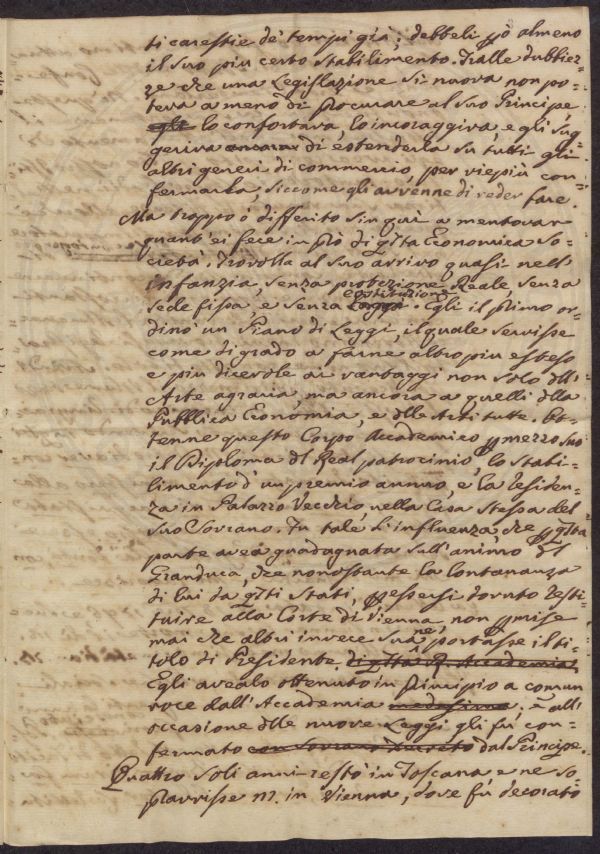 ti carestie de' tempi già; debbeli p̱ò almeno
il suo piu certo stabilimento. Tralle dubbiez-
ze che una Legislazione sì nuova non po=
teva a meno di procurare al suo Principe
egli lo confortava, lo incoraggiva, e gli sug=
geriva ancora di estenderla su tutti gli
altri generi di commercio, per viepiù con
fermarla, siccome gli avvenne di veder fare.
Ma troppo ò differito sin quì a mentovar
quant' ei fece in prò di q̱ṯa Economica So=
cietà. Trovolla al suo arrivo quasi nell'
infanzia, senza protezione Reale senza
sede fissa e senza Leggi costituzione. Egli il primo or
dinò un Piano di Leggi, il quale servisse
come di grado a farne altro piu esteso
e piu dicevole ai vantaggi non solo dll'
Arte agraria, ma ancora a quelli dlla
Pubblica Economia, e dlle Arti tutte. Ot=
tenne questo Corpo Accademico p̱ mezzo suo
il Diploma dl Real patrocinio, lo stabi=
limento d' un premio annuo, e la residen=
za in Palazzo Vecchio, nella Casa stessa del
suo Sovrano. Fu tale l' influenza, che p̱ q̱ṯa
parte avea guadagnata sull' animo dl
Granduca, che nonostante la lontananza
di lui da q̱ṯi Stati, p̱ essersi dovuto resti=
tuire alla Corte di Vienna, non p̱mise
mai che altri invece sua ne portasse il ti=
tolo di Presidente di q̱ṯa R. Accademia.
Egli avealo ottenuto in principio a comun
voce dall' Accademia medesima; e all'
occasione dlle nuove Leggi gli fù con=
fermato con Sovrano Decreto dal Principe.
Quattro soli anni restò in Toscana, e ne so
pravvisse in Vienna, dove fù decorato